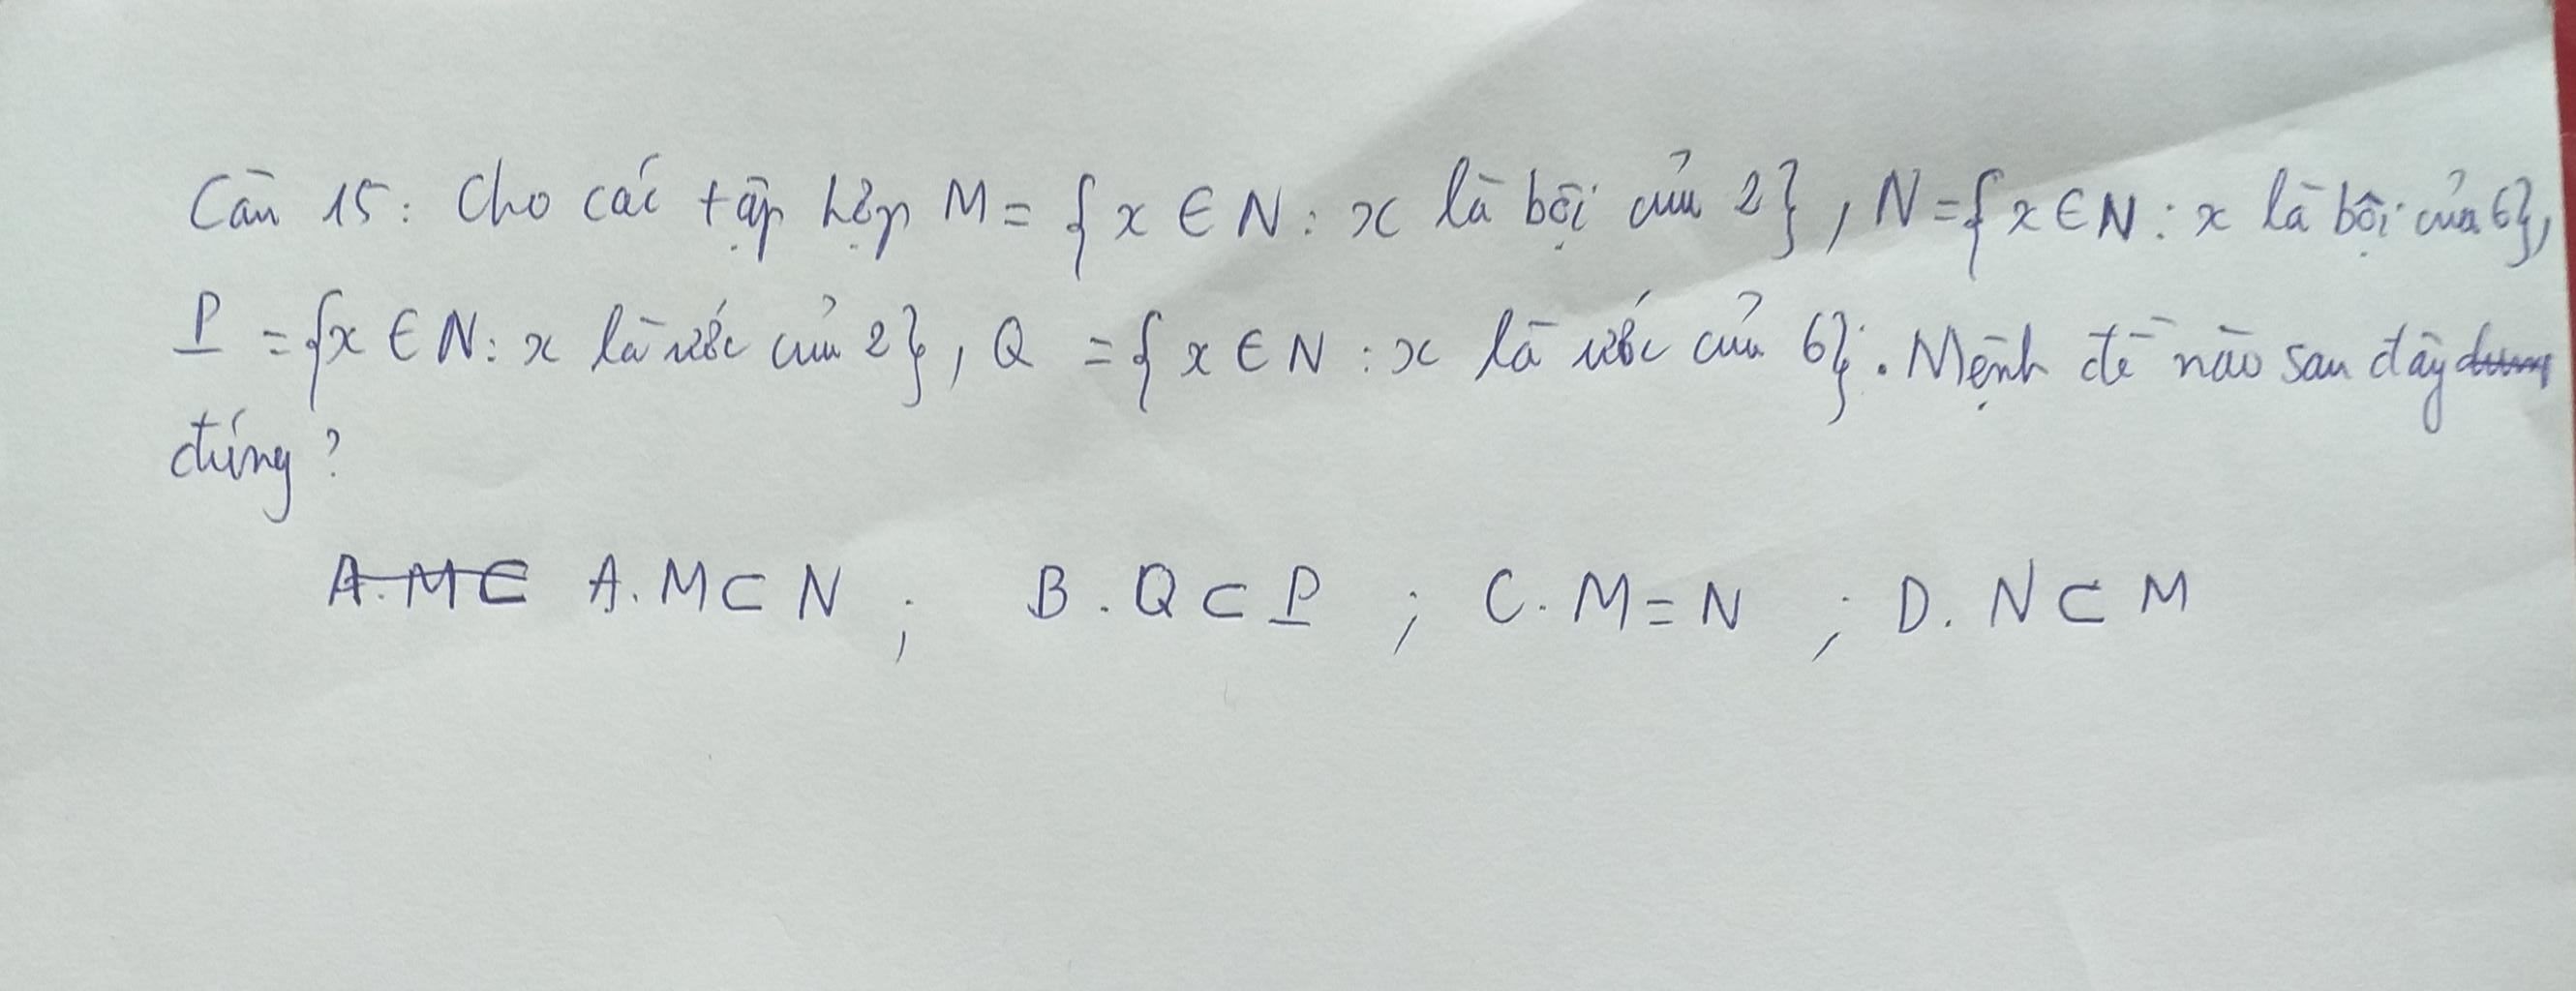 Câu 15: Cho các tập hợp M = {x ∈ N : x là bội của 2}, N = {x ∈ N : x là bội của 6},
P = {x ∈ N : x là ước của 2}, Q = {x ∈ N : x là ước của 6}. Mệnh đề nào sau đây
đúng?
A. M ⊂ A. M ⊂ N ; B. Q ⊂ P ; C. M = N ; D. N ⊂ M